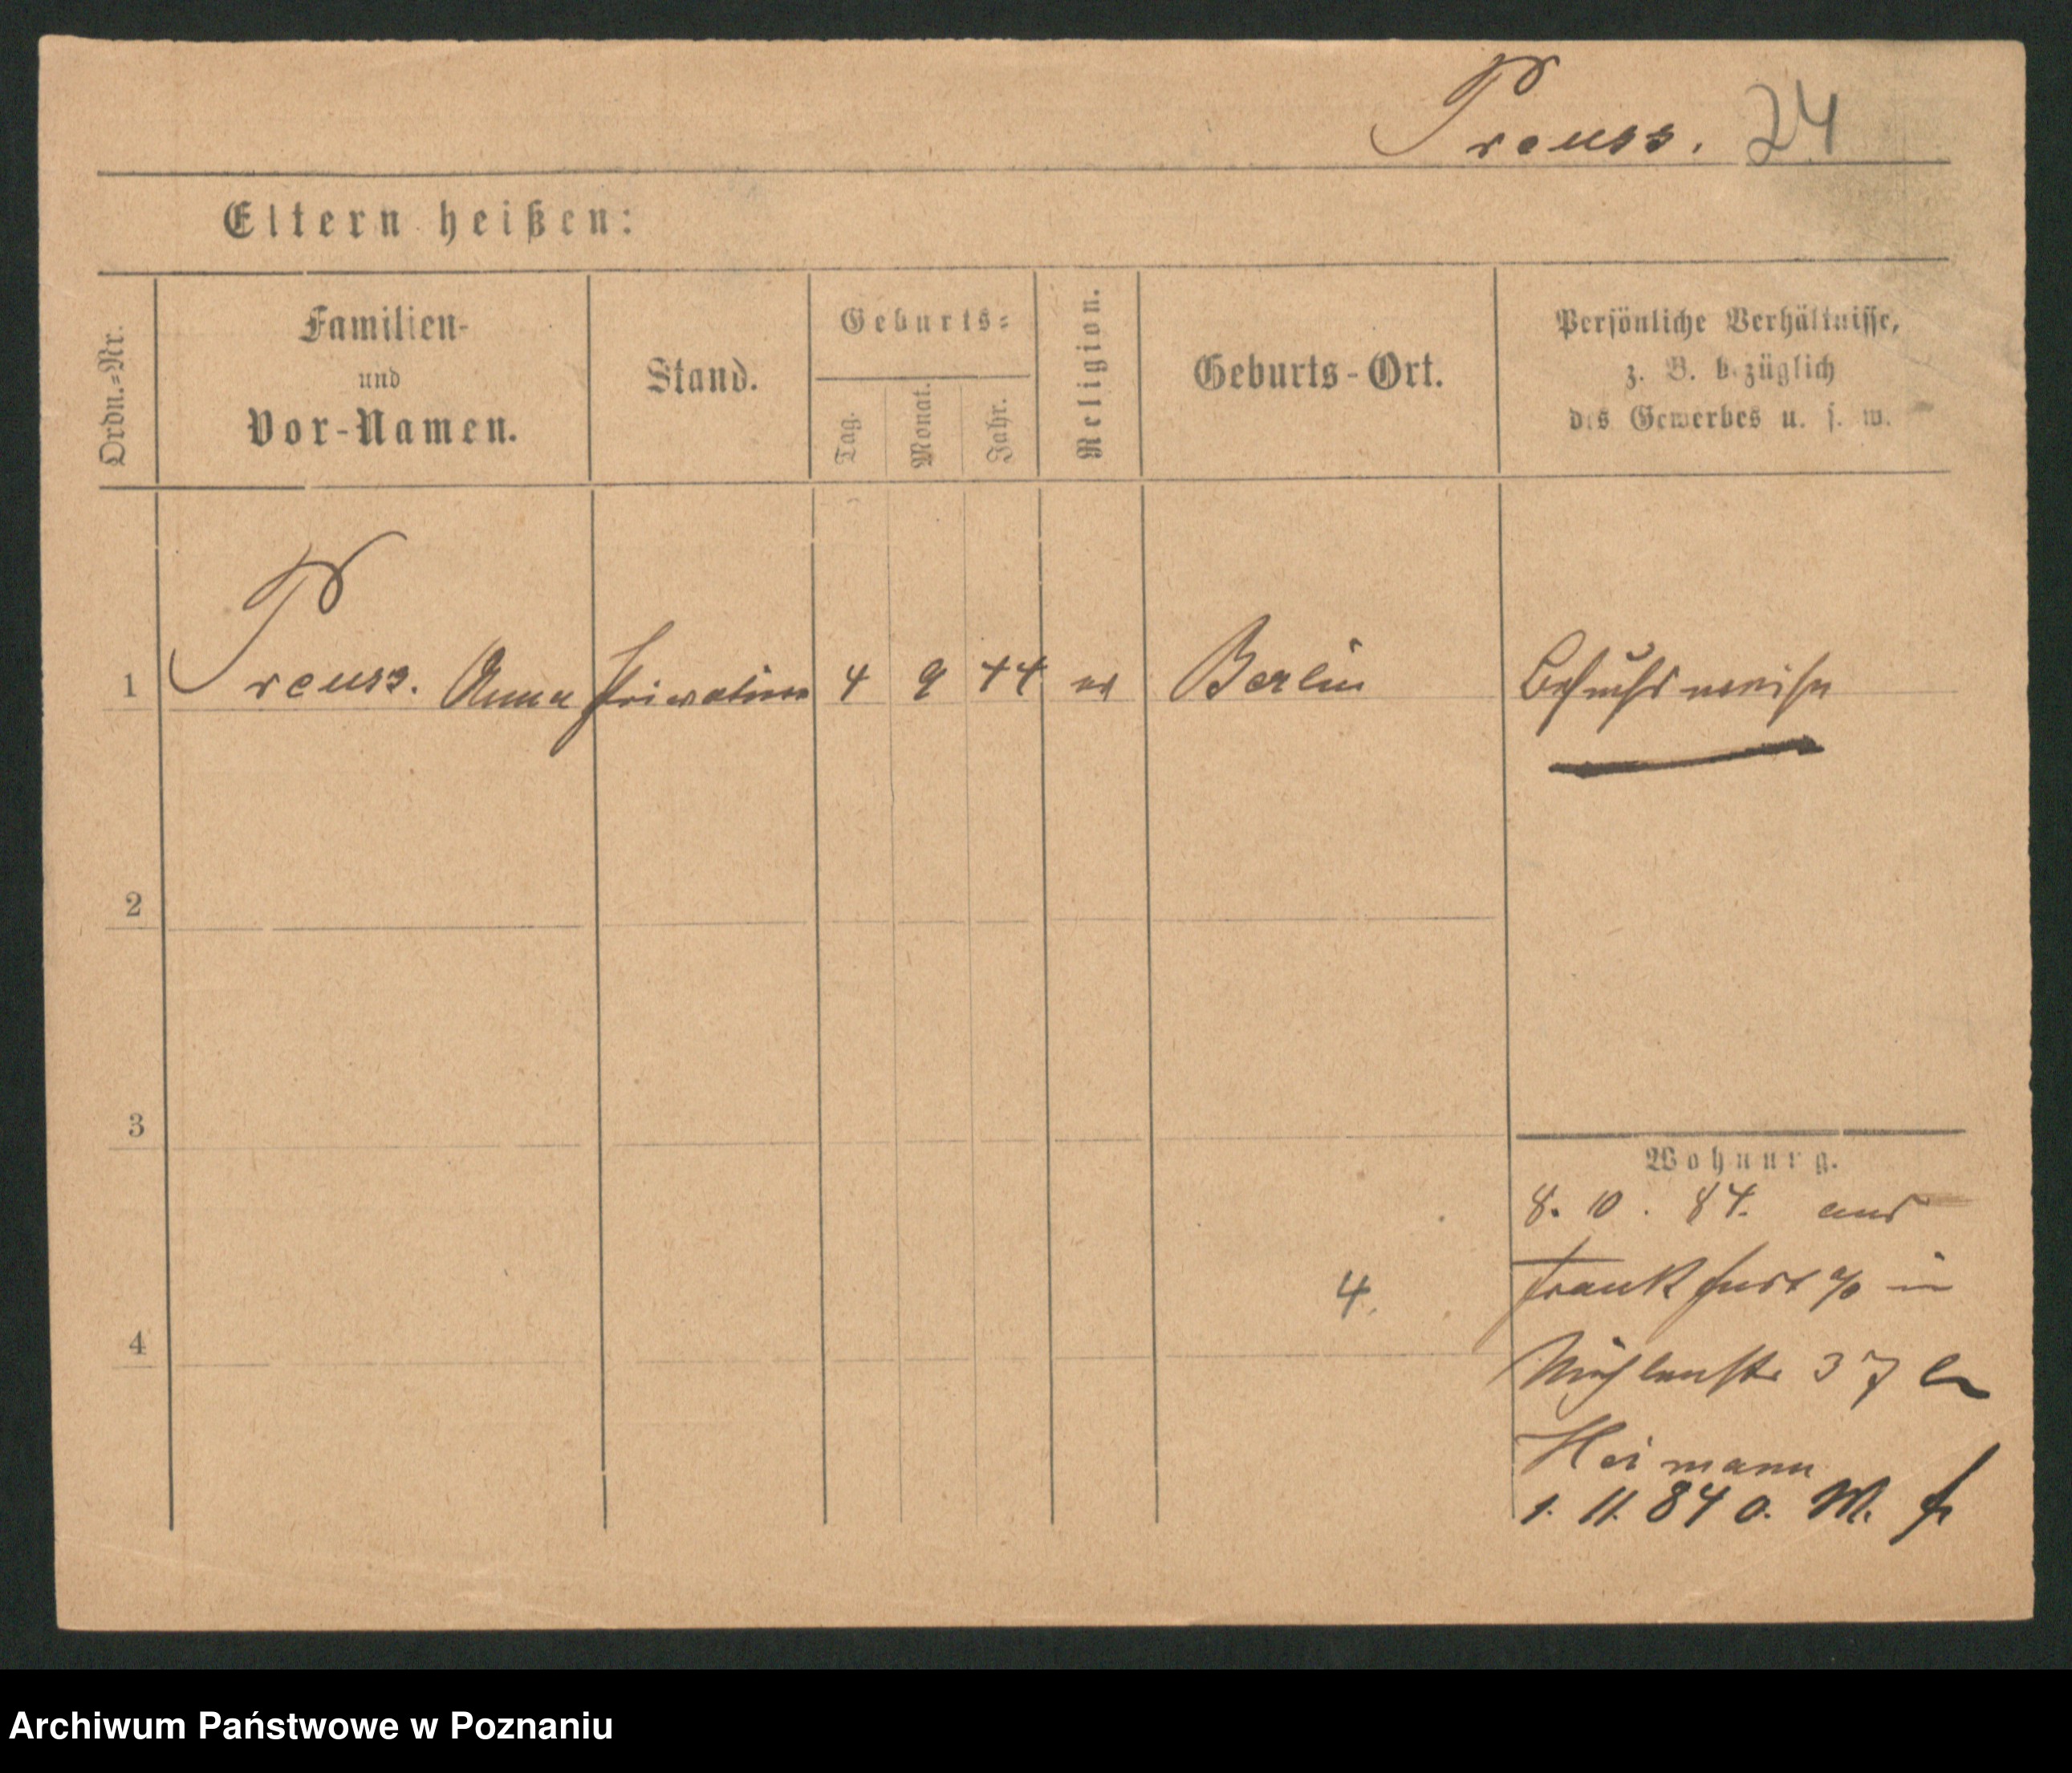 Preuss. 24
Eltern heißen:
Ordn.=Nr.
Familien-
und
Vor-Namen.
Stand.
Geburts=
Tag.
Monat.
Jahr.
Religion.
Geburts-Ort.
Persönliche Verhältnisse,
z. B. bezüglich
des Gewerbes u. s. w.
1 Preuss. Anna 4 9 44 Berlin Besuchsweise
2
3
Wohnung.
8. 10. 84. aus
Frankfurt a/o in
4.
4
Mühlenstr 37
Heimann
1. 11. 84 o. W.
Archiwum Państwowe w Poznaniu